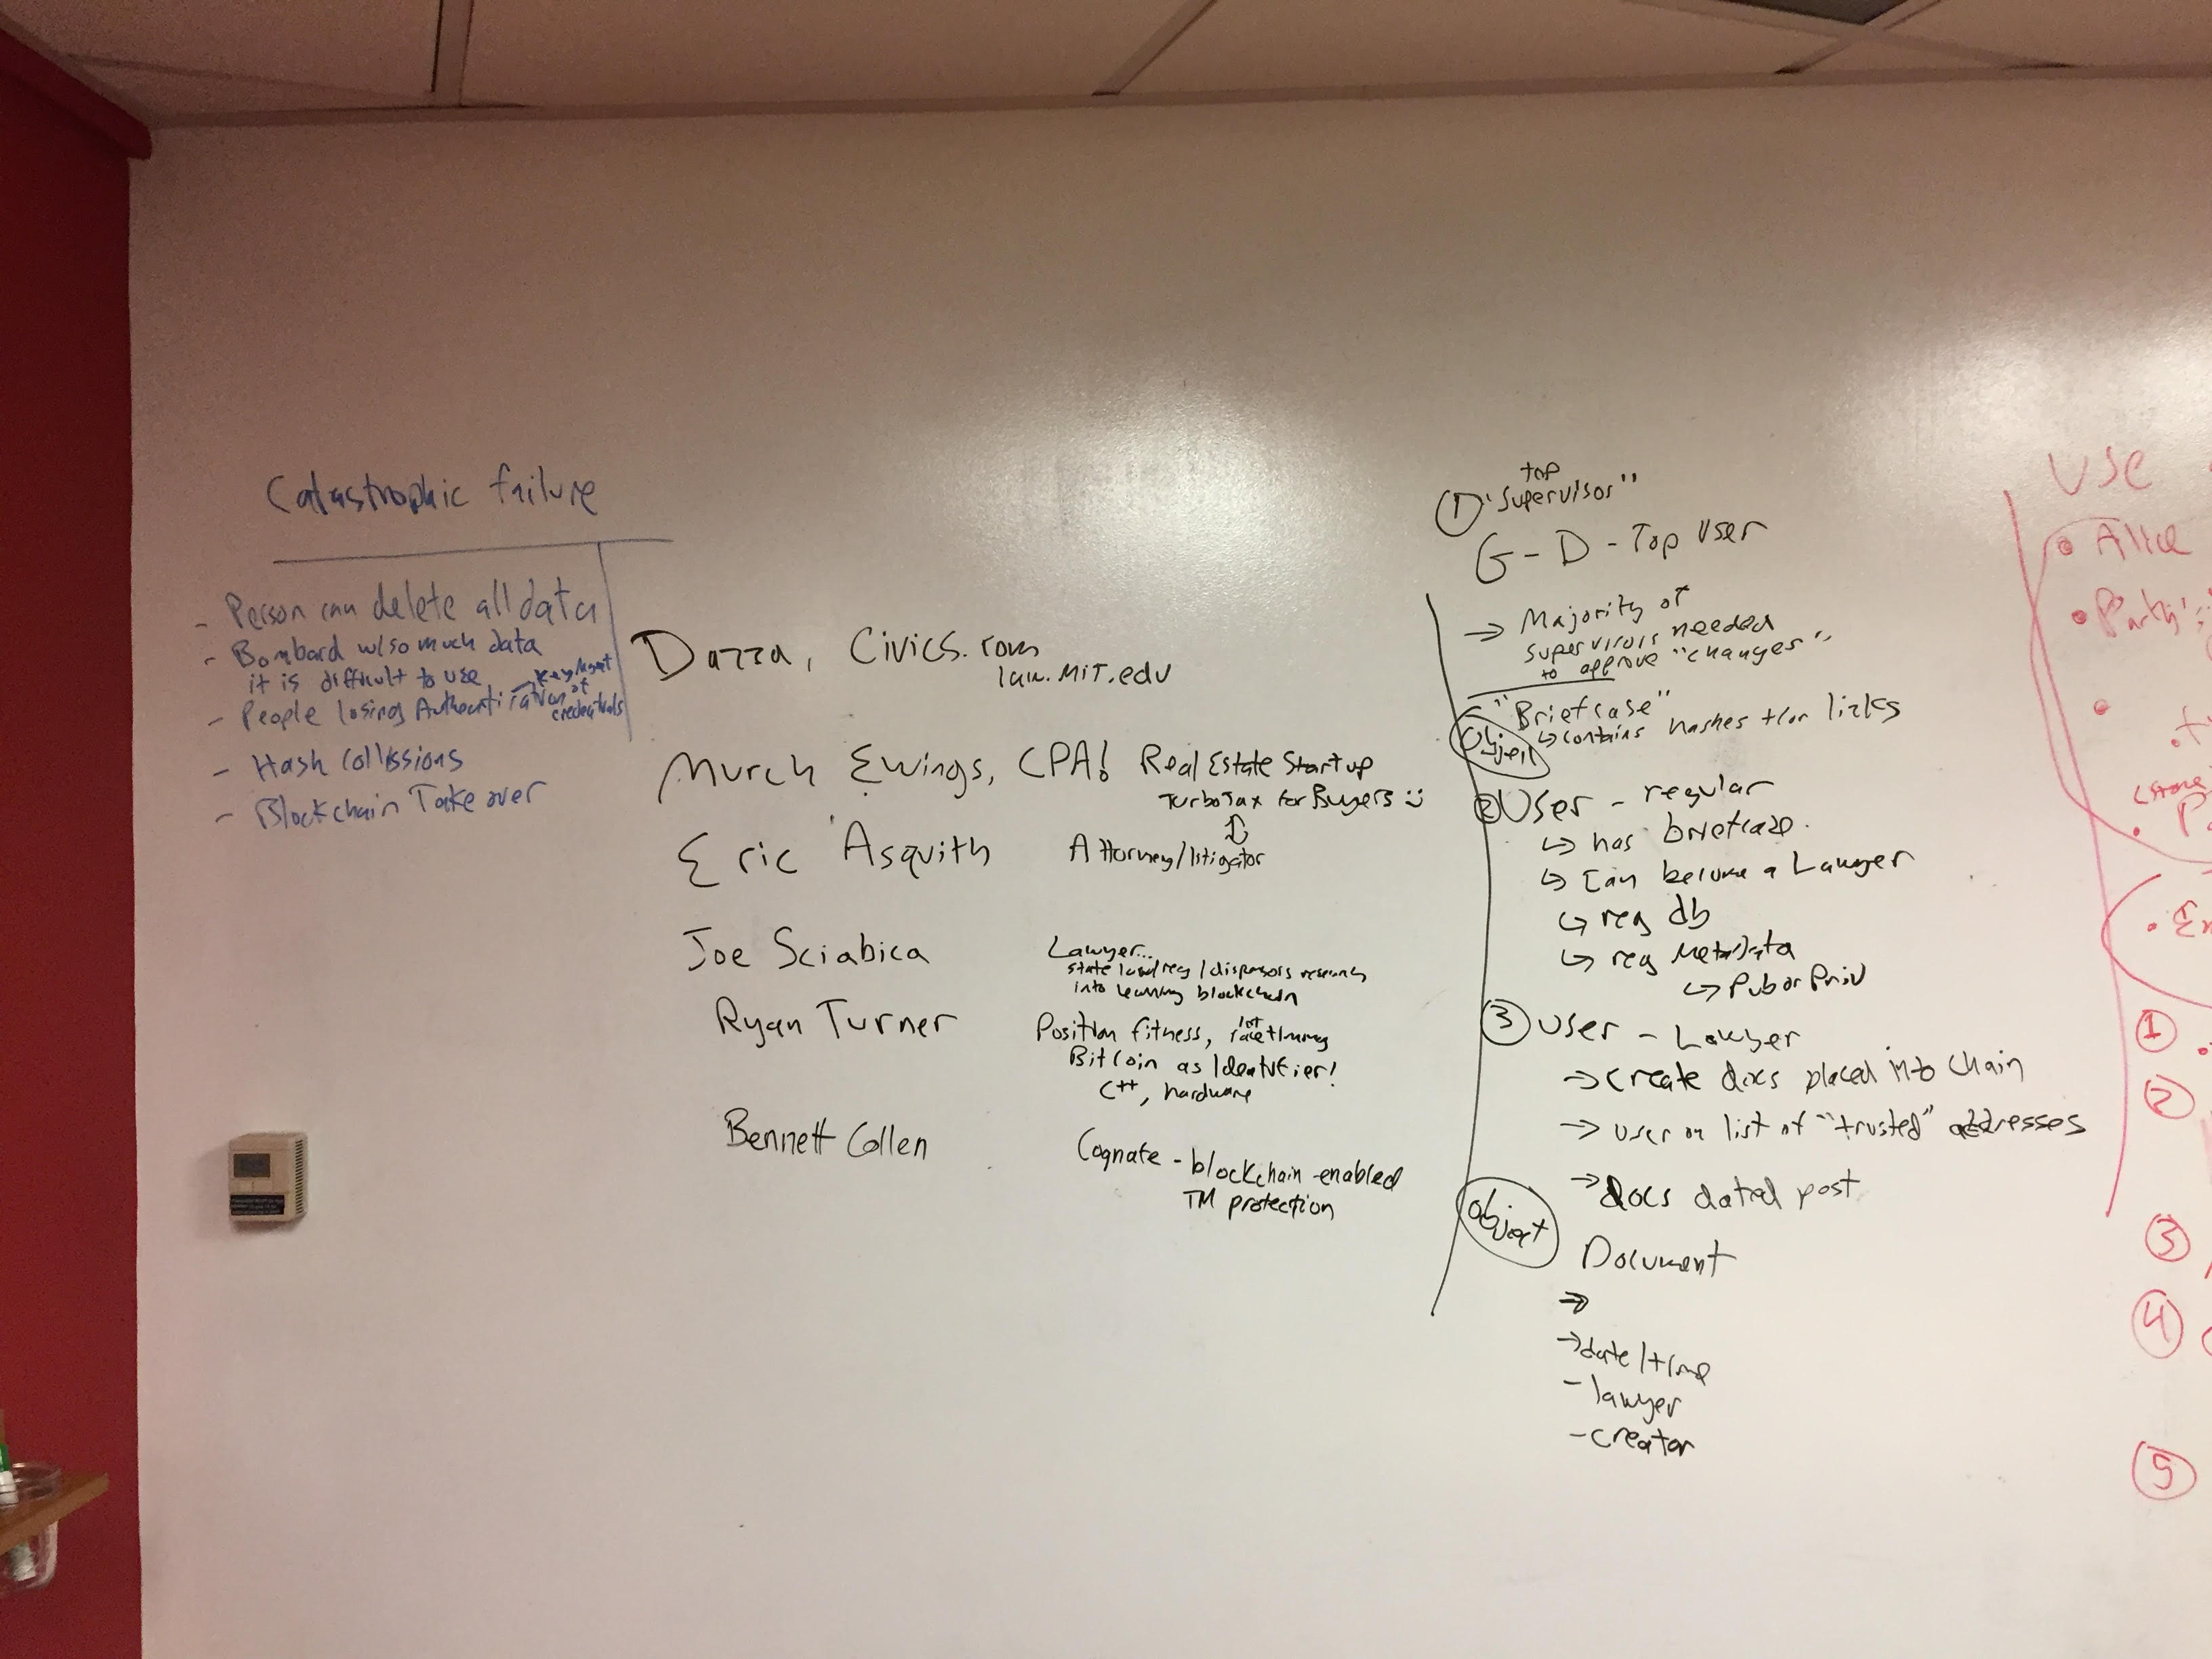 Catastrophic failure
- Person can delete all data
- Bombard w/so much data
it is difficult to use
- People losing Authentication
→ Key Mgmt
of
credentials
- Hash Collissions
- Blockchain Take over
Dazza, Civics.com
law.MIT.edu
Murch Ewings, CPA! Real Estate Startup
TurboTax for Buyers :)
Eric Asquith Attorney/litigator
Joe Sciabica Lawyer...
state
into learning blockchain
Ryan Turner Position fitness,
BitCoin as Identifier!
C++, hardware
Bennett Collen Cognate - blockchain-enabled
TM protection
top
① "Supervisor"
G-D - Top User
→ Majority of
supervisors needed
to approve "changes"
"Briefcase"
Object ↳ contains hashes +/or links
② User - regular
↳ has briefcase.
↳ Can become a Lawyer
↳ reg db
↳ reg MetaData
↳ Pub or Priv
③ User - Lawyer
→ create docs placed into chain
→ user on list of "trusted" addresses
→ docs dated post
object
Document
→
→ date/time
- lawyer
- creator
Use
• Alice
• Party
①
②
③
④
5